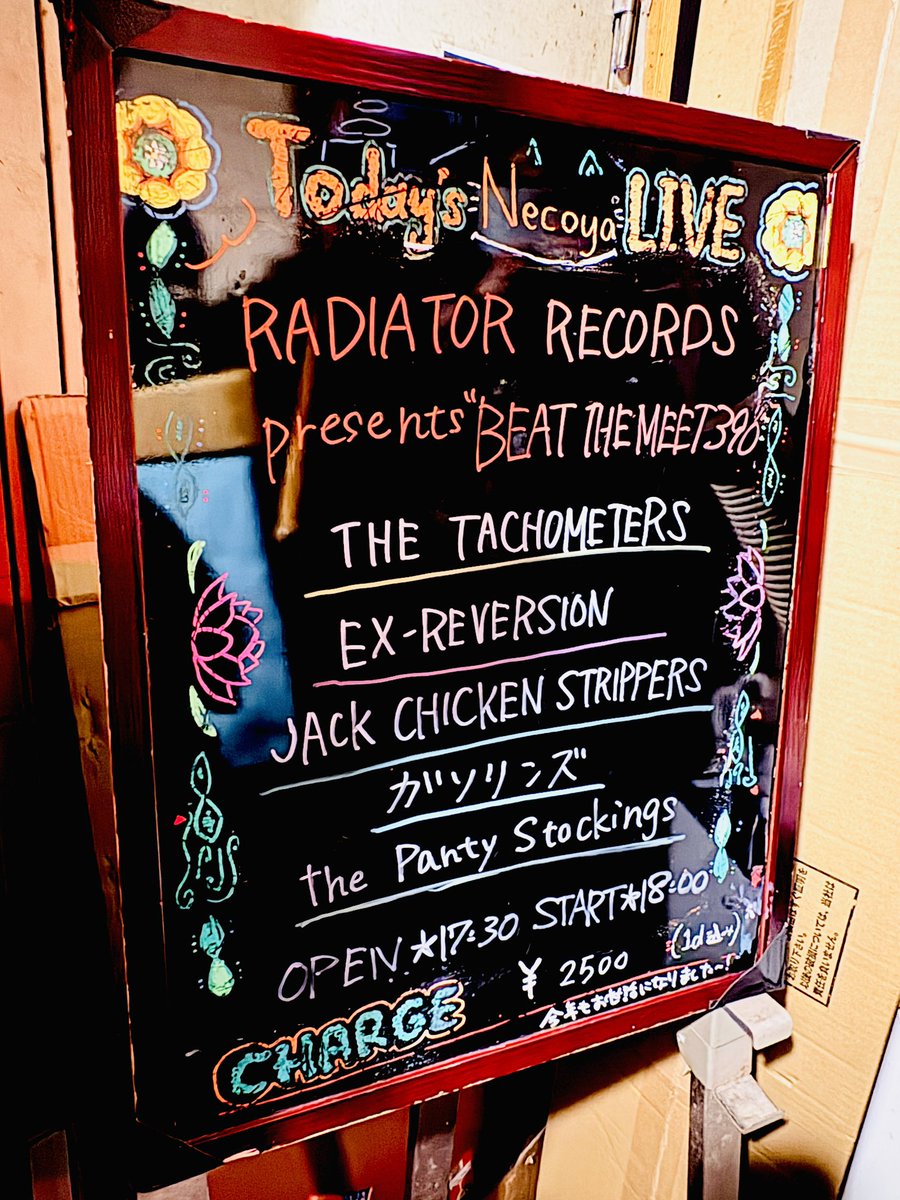 Today's Necoya LIVE
RADIATOR RECORDS
presents "BEAT THE MEET 390"
THE TACHOMETERS
EX-REVERSION
JACK CHICKEN STRIPPERS
ガソリンズ
the Panty Stockings
OPEN★17:30 START★18:00
CHARGE ¥2500 (1d込み)
今年もお世話になりました〜!
お取り下さい。
以後の破損については、当社は
責任を負いません。